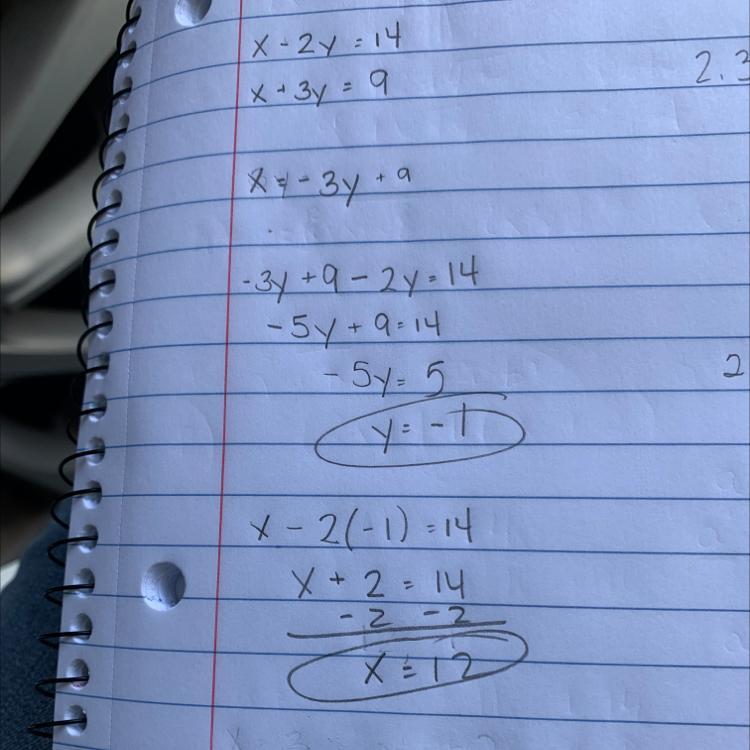 x - 2y = 14
x + 3y = 9
2.3
x = -3y + 9
-3y + 9 - 2y = 14
-5y + 9 = 14
-5y = 5
2
y = -1
x - 2(-1) = 14
x + 2 = 14
-2 -2
x = 12